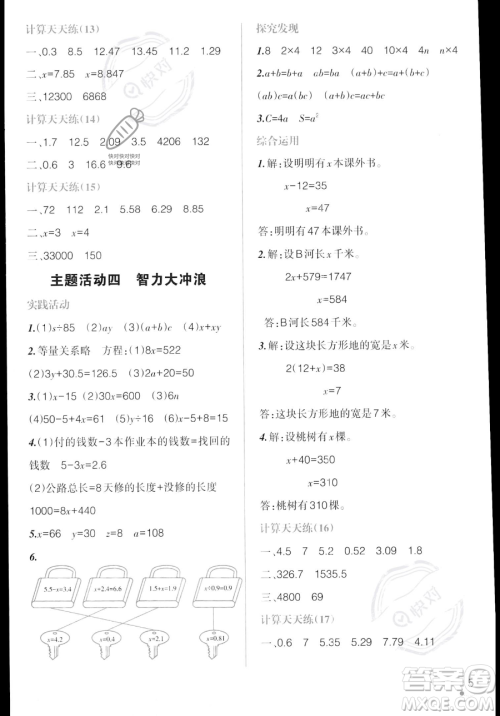 计算天天练(13)
一、0.3 8.5 47.25 0.01
二、x=7.85 x=4.3
三、12300 6868
计算天天练(14)
一、1.7 12.5 2.09 3.5 4206 132
二、0.6 3 16.6 9.6
计算天天练(15)
一、72 112 0.1 5.58 8.29 6.87
二、x=6 x=9
三、33000 150
主题活动四 智力大冲浪
实践活动
1.(1)s÷85 (2)ay (3)6a (4)x+xy
2.等量关系略 方程:(1)8x=522
(2)3x=73.8 (3)2a+20=50
3.(1)30-b (2)7x (3)10+6n
(4)50-5+5 (5)y÷7 (6)5-4+4
4.(1)付的钱数-3本作业本的钱数=找回的
钱数 5-3x=2.6
(2)公路总长=8天修的+没有修的
1000=8x+440
5.x=66 y=30 z=8 a=108
6.
5.5-x=3.4 x=2.4=6.6 x+5.5=9.7 x÷0.9=0.9
x=4.2 x=2.1 x=4.2 x=0.81
探究发现
1.8 2×4 12 3×4 20 5×4 4n n×4
2.a+b=b+a ab=ba a+b+c=a+(b+c)
(ab)c=a(bc) (a+b)c=ac+bc
3.C=4a S=a²
综合运用
1.解:设明明有x本课外书。
x-12=35
x=47
答:明明有47本课外书。
2.解:设B河长x千米。
2x+579=1747
x=584
答:B河长584千米。
3.解:设这块长方形地的宽是x米。
2(12+x)=38
x=7
答:这块长方形地的宽是7米。
4.解:设桃树有x棵。
x+40=350
x=310
答:桃树有310棵。
计算天天练(16)
一、4.07 5 5.2 0.52 0.41 7.6
二、326.7 1350
三、4800 69
计算天天练(17)
一、0.6 7 5.3 5.29 7.79 4.11
快对
答案圈